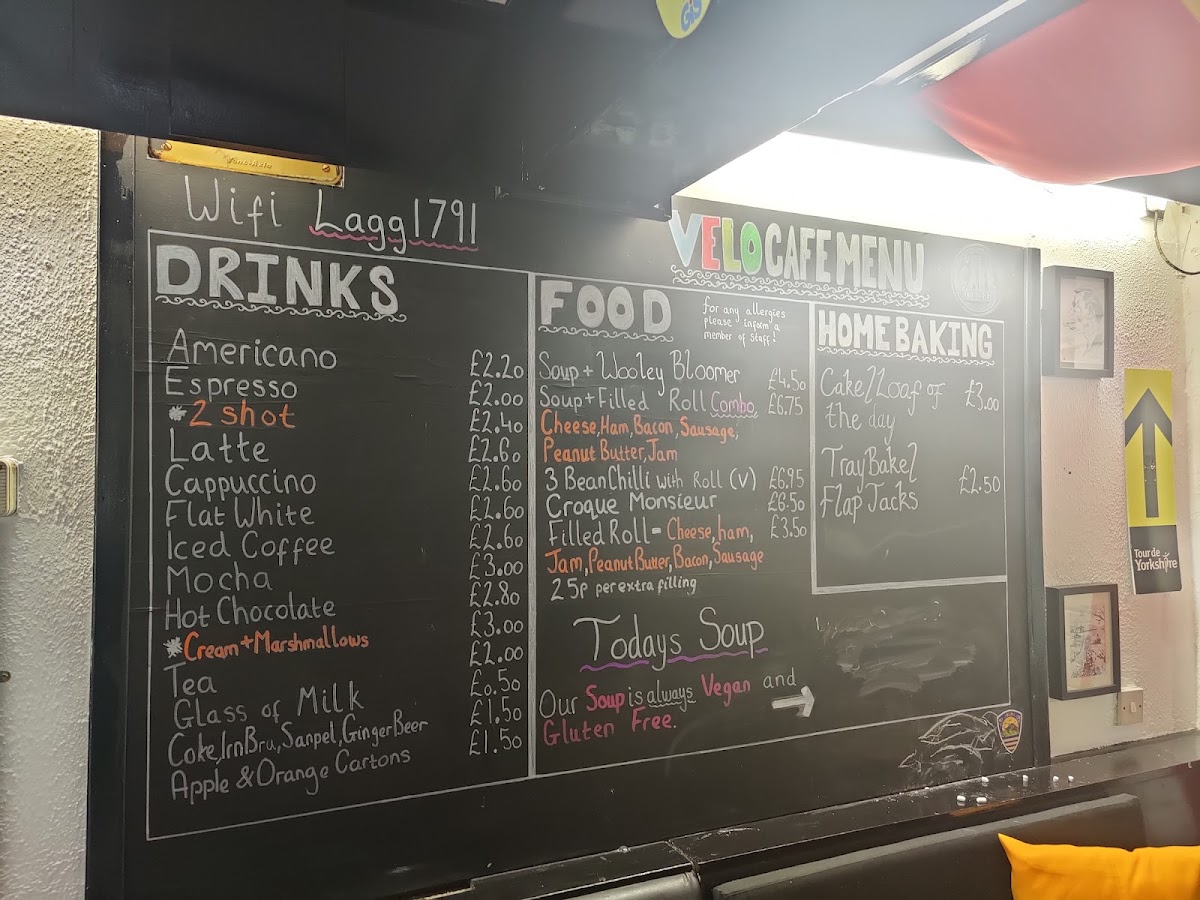 Wifi Lagg1791
VELO CAFE MENU
DRINKS
Americano £2.20
Espresso £2.00
*2 shot £2.40
Latte £2.60
Cappuccino £2.60
Flat White £2.60
Iced Coffee £2.60
Mocha £3.00
Hot Chocolate £2.80
*Cream+Marshmallows £3.00
Tea £2.00
Glass of Milk £0.50
Coke, Irn Bru, Sanpel, Ginger Beer £1.50
Apple & Orange Cartons £1.50
FOOD
for any allergies
please inform a
member of staff!
Soup + Wooley Bloomer £4.50
Soup + Filled Roll Combo £6.75
Cheese, Ham, Bacon, Sausage,
Peanut Butter, Jam
3 Bean Chilli with Roll (V) £6.95
Croque Monsieur £6.50
Filled Roll - Cheese, ham, £3.50
Jam, Peanut Butter, Bacon, Sausage
25p per extra filling
Todays Soup
Our Soup is always Vegan and
Gluten Free.
HOME BAKING
Cake/Loaf of £3.00
the day
Tray Bake/
Flap Jacks £2.50
Tour de
Yorkshire